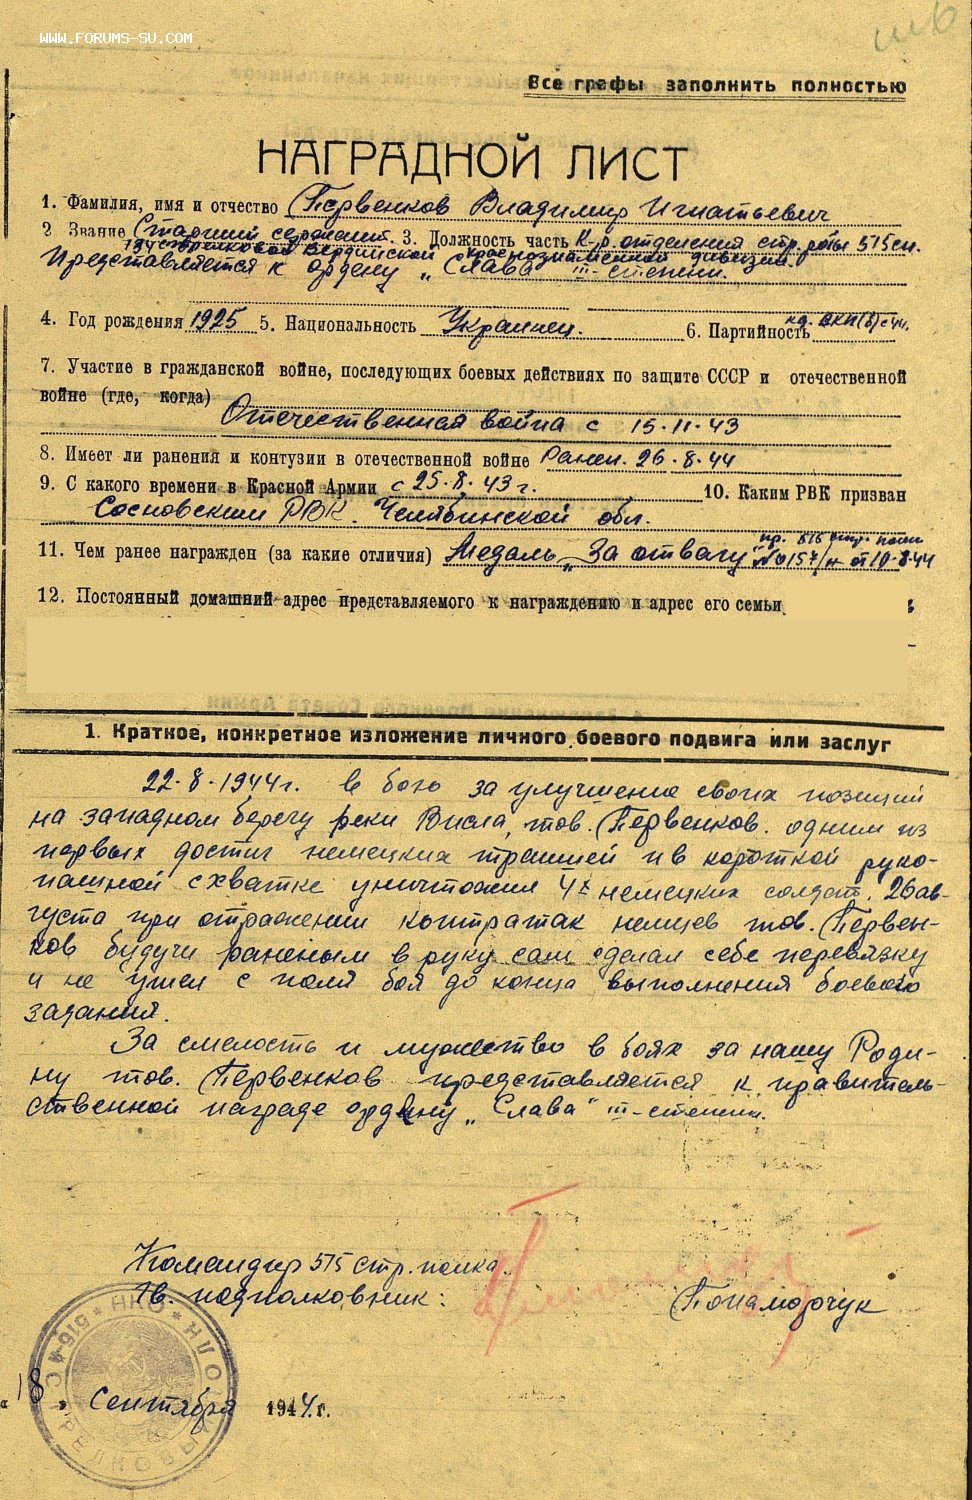 WWW.FORUMS-SU.COM
Все графы заполнить полностью
НАГРАДНОЙ ЛИСТ
1. Фамилия, имя и отчество Первенков Владимир Игнатьевич
2 Звание Старший сержант. 3. Должность часть К-р. отделения стр. роты 515 сп.
134 стрелковой Вердинской краснознаменной дивизии.
Представляется к ордену „Слава" III-степени.
4. Год рождения 1925 5. Национальность Украинец. 6. Партийность кд. ВКП(б) с 44г.
7. Участие в гражданской войне, последующих боевых действиях по защите СССР и отечественной
войне (где, когда)
Отечественная война с 15·11·43
8. Имеет ли ранения и контузии в отечественной войне Ранен. 26·8·44
9. С какого времени в Красной Армии с 25·8·43 г. 10. Каким РВК призван
Сосновским РВК. Челябинской обл.
11. Чем ранее награжден (за какие отличия) Медаль „За отвагу" пр. 515 стр. полка №015/н от 10·8·44
12. Постоянный домашний адрес представляемого к награждению и адрес его семьи
1. Краткое, конкретное изложение личного боевого подвига или заслуг
22·8·1944г. в бою за улучшение своих позиций
на западном берегу реки Висла, тов. Первенков. одним из
первых достиг немецких траншей и в короткой руко-
пашной схватке уничтожил 4х немецких солдат. 26 ав-
густа при отражении контратак немцев тов. Первен-
ков будучи раненым в руку сам сделал себе перевязку
и не ушел с поля боя до конца выполнения боевого
задания.
За смелость и мужество в боях за нашу Роди-
ну тов. Первенков представляется к правитель-
ственной награде ордену „Слава" III-степени.
Командир 515 стр. полка.
Гв. подполковник: Понаморчук
НКО
„18" Сентября 1944.г.